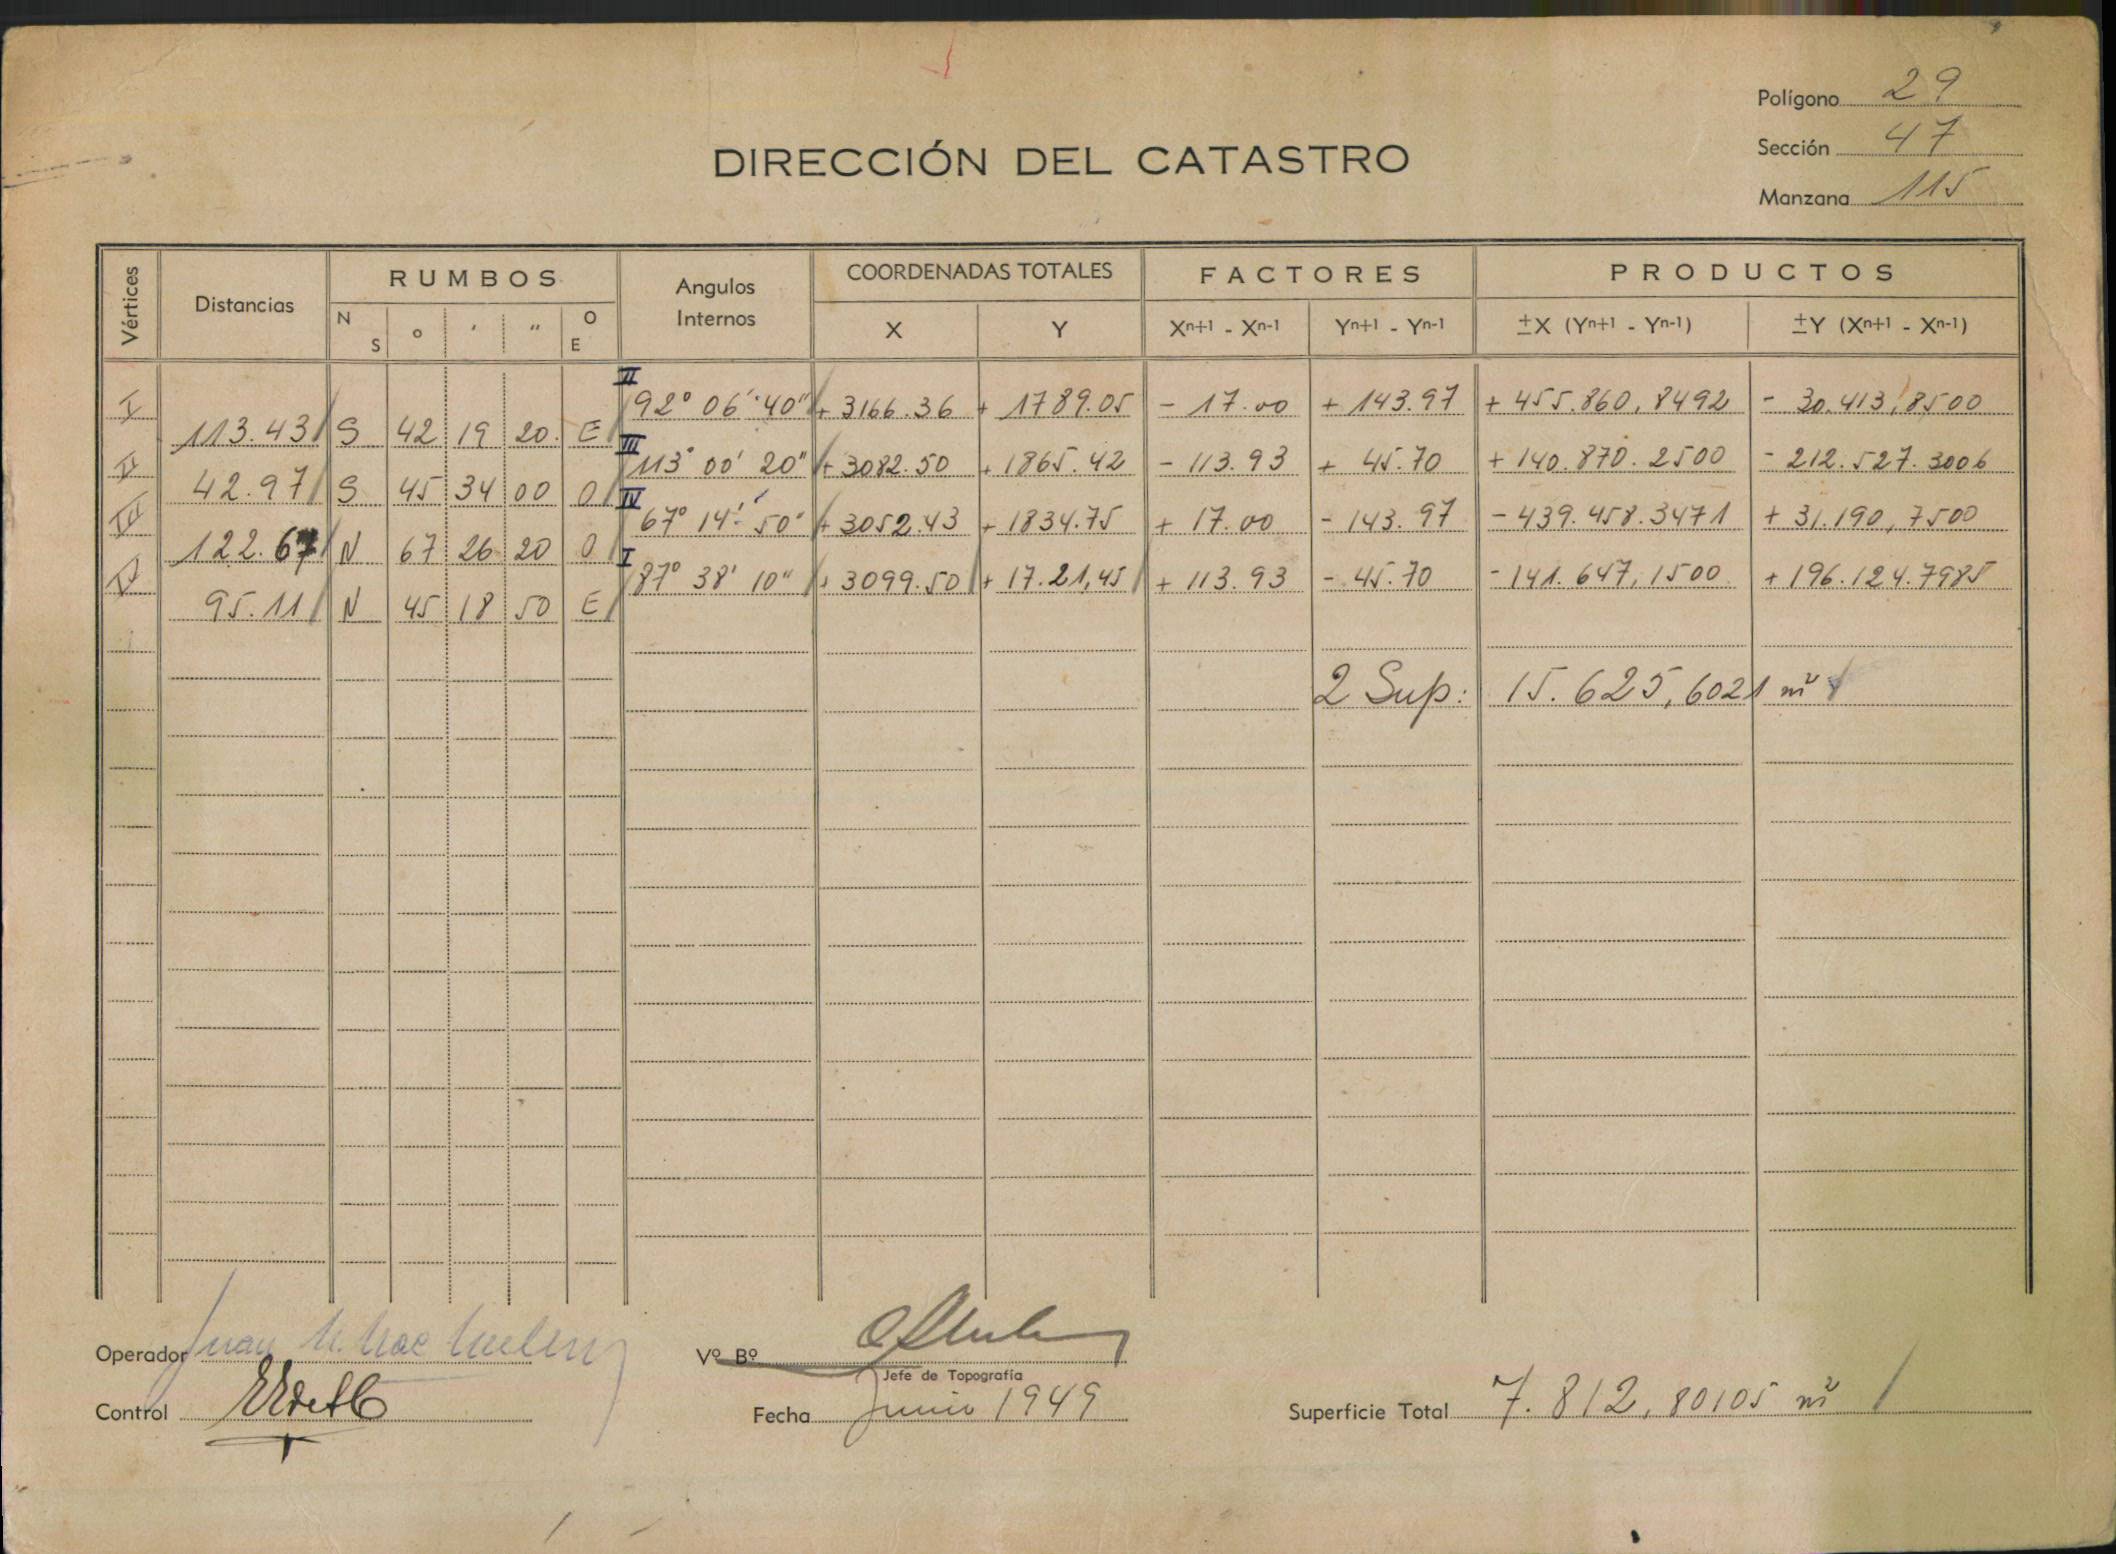 Polígono 29
Sección 47
Manzana 115
DIRECCIÓN DEL CATASTRO
Vértices Distancias RUMBOS Angulos Internos COORDENADAS TOTALES FACTORES PRODUCTOS
N S o ′ ″ O E X Y Xn+1 - Xn-1 Yn+1 - Yn-1 ±X (Yn+1 - Yn-1) ±Y (Xn+1 - Xn-1)
I II 92° 06′ 40″ + 3166.36 + 1789.05 - 17.00 + 143.97 + 455.860,8492 - 30.413,8500
113.43 S 42 19 20 E
II III 113° 00′ 20″ + 3082.50 + 1865.42 - 113.93 + 45.70 + 140.870.2500 - 212.527.3006
42.97 S 45 34 00 O
III IV 67° 14′ 50″ + 3052.43 + 1834.75 + 17.00 - 143.97 - 439.458.3471 + 31.190,7500
122.67 N 67 26 20 O
IV I 87° 38′ 10″ + 3099.50 + 17.21,45 + 113.93 - 45.70 - 141.647,1500 + 196.124.7985
95.11 N 45 18 50 E
2 Sup: 15.625,6021 m²
Operador Juan
Vº Bº
Jefe de Topografía
Control
Fecha Junio 1949
Superficie Total 7.812,80105 m²